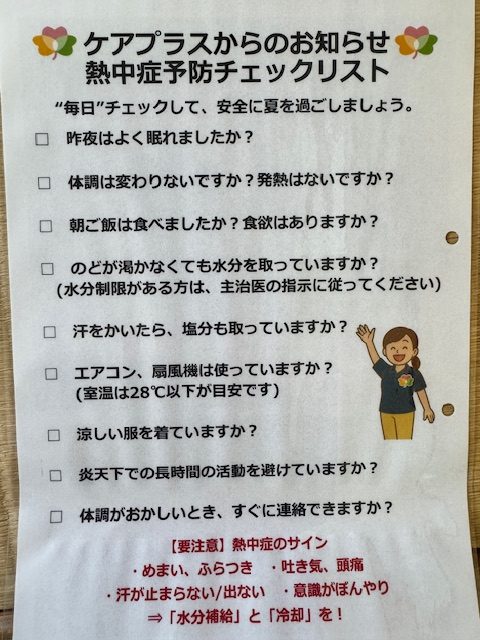 ケアプラスからのお知らせ
熱中症予防チェックリスト
“毎日”チェックして、安全に夏を過ごしましょう。
□ 昨夜はよく眠れましたか？
□ 体調は変わりないですか？発熱はないですか？
□ 朝ご飯は食べましたか？食欲はありますか？
□ のどが渇かなくても水分を取っていますか？
(水分制限がある方は、主治医の指示に従ってください)
□ 汗をかいたら、塩分も取っていますか？
□ エアコン、扇風機は使っていますか？
(室温は28℃以下が目安です)
□ 涼しい服を着ていますか？
□ 炎天下での長時間の活動を避けていますか？
□ 体調がおかしいとき、すぐに連絡できますか？
【要注意】熱中症のサイン
・めまい、ふらつき ・吐き気、頭痛
・汗が止まらない/出ない ・意識がぼんやり
⇒「水分補給」と「冷却」を！